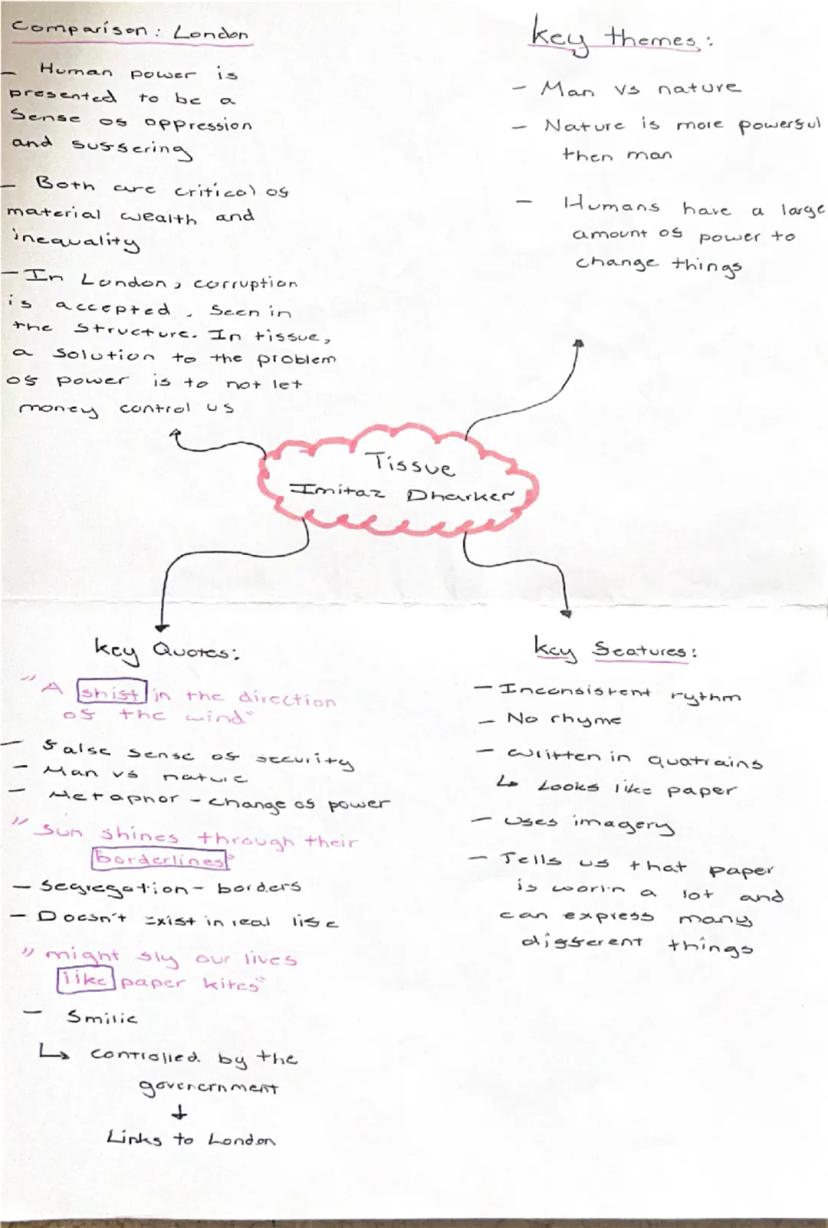 Comparison: London
- Human power is
presented to be a
sense of oppression
and suffering
- Both are critical of
material wealth and
inequality
- In London, corruption
is accepted, seen in
the structure. In tissue,
a solution to the problem
of power is to not let
money control us
key themes:
- Man vs nature
- Nature is more powerful
then man
- Humans have a large
amount of power to
change things
Tissue
Imitaz Dharker
key Quotes:
"A shift in the direction
of the wind"
- false sense of security
- Man vs nature
- Metaphor - change of power
"Sun shines through their
borderlines"
- Segregation - borders
- Doesn't exist in real life
"might fly our lives
like paper kites"
- Smilie
↳ controlled by the
goverernment
↓
Links to London
key features:
- Inconsistent rythm
- No rhyme
- written in quatrains
↳ Looks like paper
- uses imagery
- Tells us that paper
is worth a lot and
can express many
different things